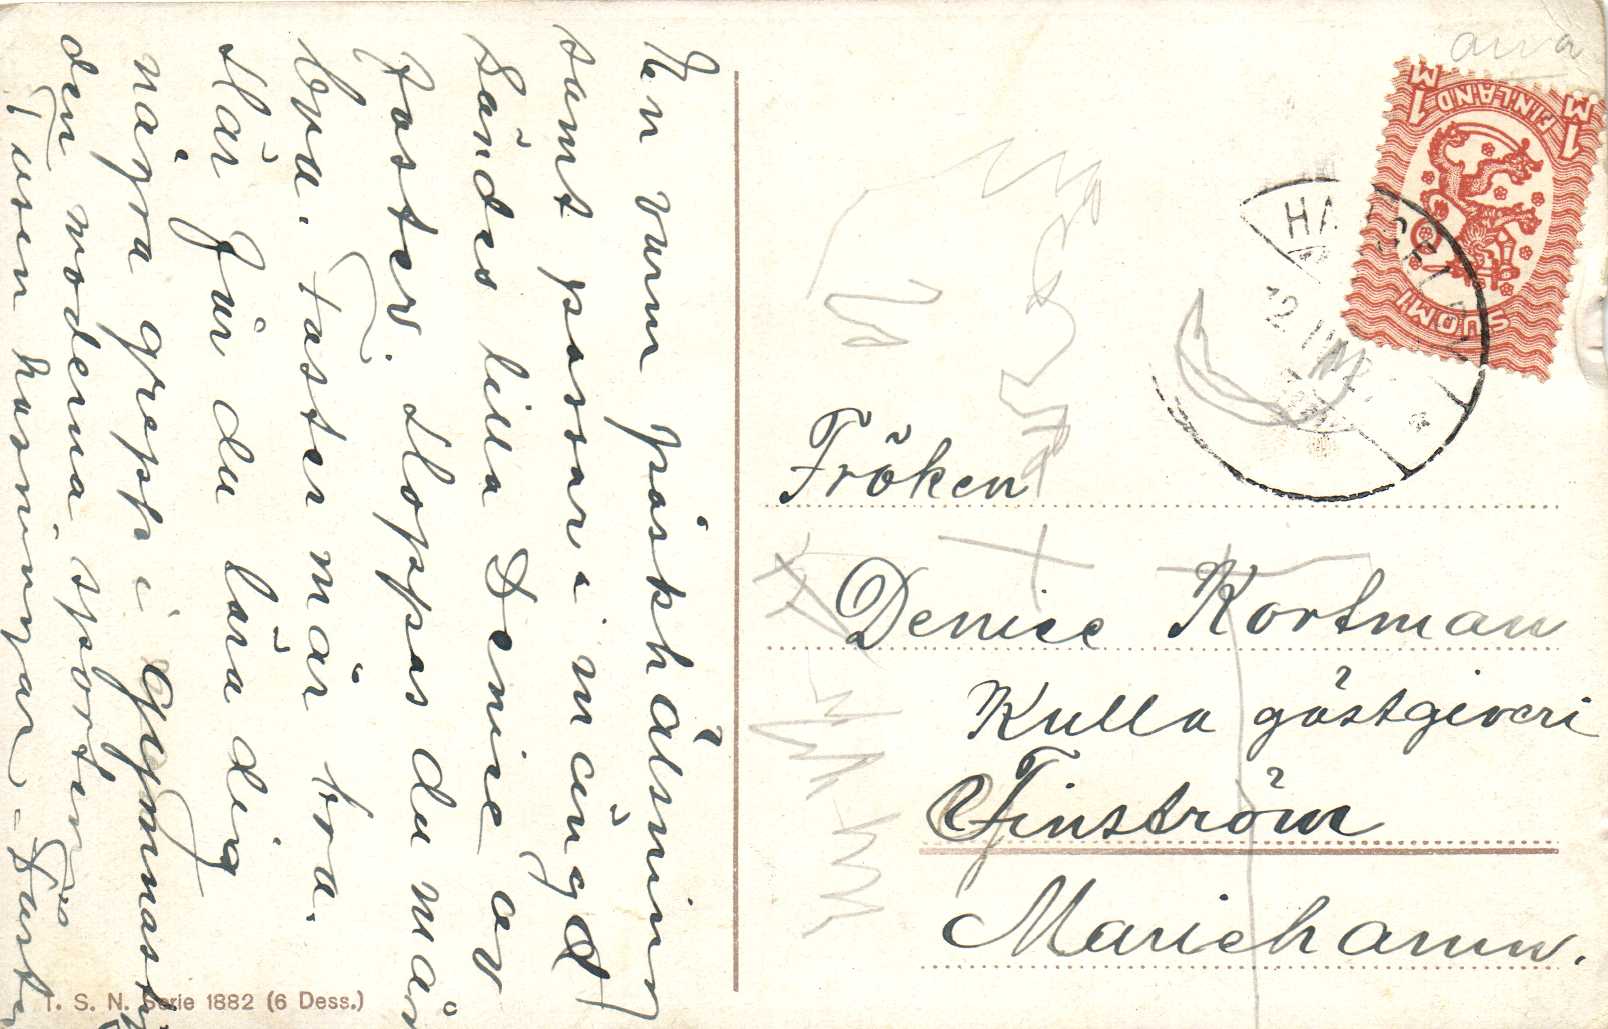 En varm påskhälsning
samt passar i mängd
sändes lilla Denice av
faster. Hoppas du mår
bra. Faster mår bra.
Här får du lära dig
några grepp i Gymnastik
den moderna sporten
Tusen kramingar Faster
T. S. N. Serie 1882 (6 Dess.)
FINLAND
1 M
1 M
SUOMI
12. IV
Fröken
Denice Kortman
Kulla gästgiveri
Finström
Mariehamn.